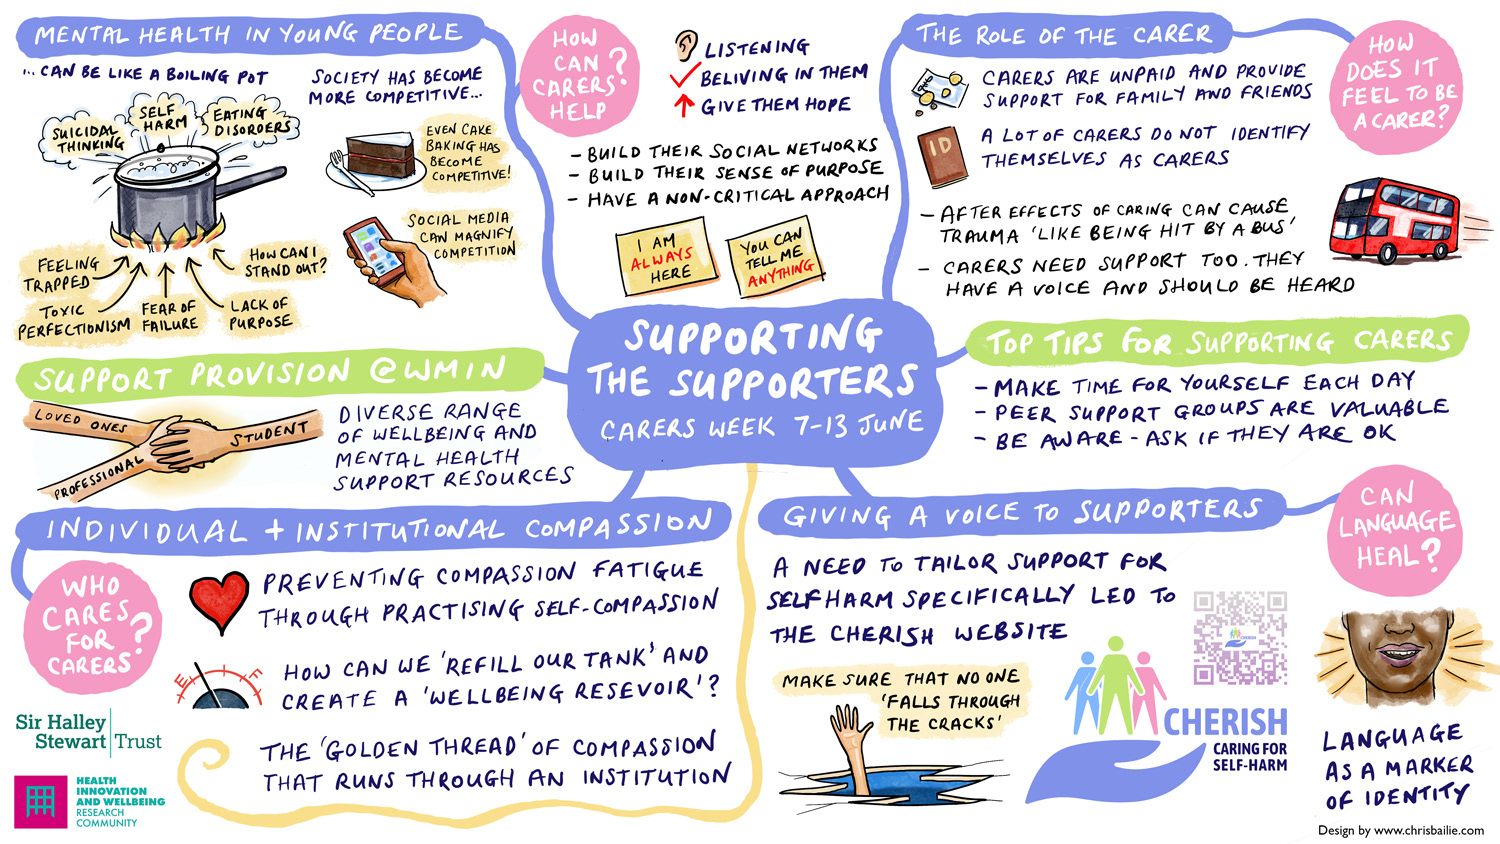 MENTAL HEALTH IN YOUNG PEOPLE
... CAN BE LIKE A BOILING POT
SUICIDAL
THINKING
SELF
HARM
EATING
DISORDERS
FEELING
TRAPPED
TOXIC
PERFECTIONISM
FEAR OF
FAILURE
LACK OF
PURPOSE
HOW CAN I
STAND OUT?
SOCIETY HAS BECOME
MORE COMPETITIVE...
EVEN CAKE
BAKING HAS
BECOME
COMPETITIVE!
SOCIAL MEDIA
CAN MAGNIFY
COMPETITION
HOW
CAN
CARERS
HELP?
LISTENING
BELIVING IN THEM
GIVE THEM HOPE
- BUILD THEIR SOCIAL NETWORKS
- BUILD THEIR SENSE OF PURPOSE
- HAVE A NON-CRITICAL APPROACH
I AM
ALWAYS
HERE
YOU CAN
TELL ME
ANYTHING
THE ROLE OF THE CARER
CARERS ARE UNPAID AND PROVIDE
SUPPORT FOR FAMILY AND FRIENDS
ID
A LOT OF CARERS DO NOT IDENTIFY
THEMSELVES AS CARERS
- AFTER EFFECTS OF CARING CAN CAUSE
TRAUMA 'LIKE BEING HIT BY A BUS'
- CARERS NEED SUPPORT TOO. THEY
HAVE A VOICE AND SHOULD BE HEARD
HOW
DOES IT
FEEL TO BE
A CARER?
SUPPORTING
THE SUPPORTERS
CARERS WEEK 7-13 JUNE
SUPPORT PROVISION @WMIN
LOVED ONES
STUDENT
PROFESSIONAL
DIVERSE RANGE
OF WELLBEING AND
MENTAL HEALTH
SUPPORT RESOURCES
TOP TIPS FOR SUPPORTING CARERS
- MAKE TIME FOR YOURSELF EACH DAY
- PEER SUPPORT GROUPS ARE VALUABLE
- BE AWARE - ASK IF THEY ARE OK
INDIVIDUAL + INSTITUTIONAL COMPASSION
WHO
CARES
FOR
CARERS?
PREVENTING COMPASSION FATIGUE
THROUGH PRACTISING SELF-COMPASSION
E F
HOW CAN WE 'REFILL OUR TANK' AND
CREATE A 'WELLBEING RESEVOIR'?
THE 'GOLDEN THREAD' OF COMPASSION
THAT RUNS THROUGH AN INSTITUTION
Sir Halley
Stewart Trust
HEALTH
INNOVATION
AND WELLBEING
RESEARCH
COMMUNITY
GIVING A VOICE TO SUPPORTERS
A NEED TO TAILOR SUPPORT FOR
SELFHARM SPECIFICALLY LED TO
THE CHERISH WEBSITE
MAKE SURE THAT NO ONE
'FALLS THROUGH
THE CRACKS'
CHERISH
CHERISH
CARING FOR
SELF-HARM
CAN
LANGUAGE
HEAL?
LANGUAGE
AS A MARKER
OF IDENTITY
Design by www.chrisbailie.com